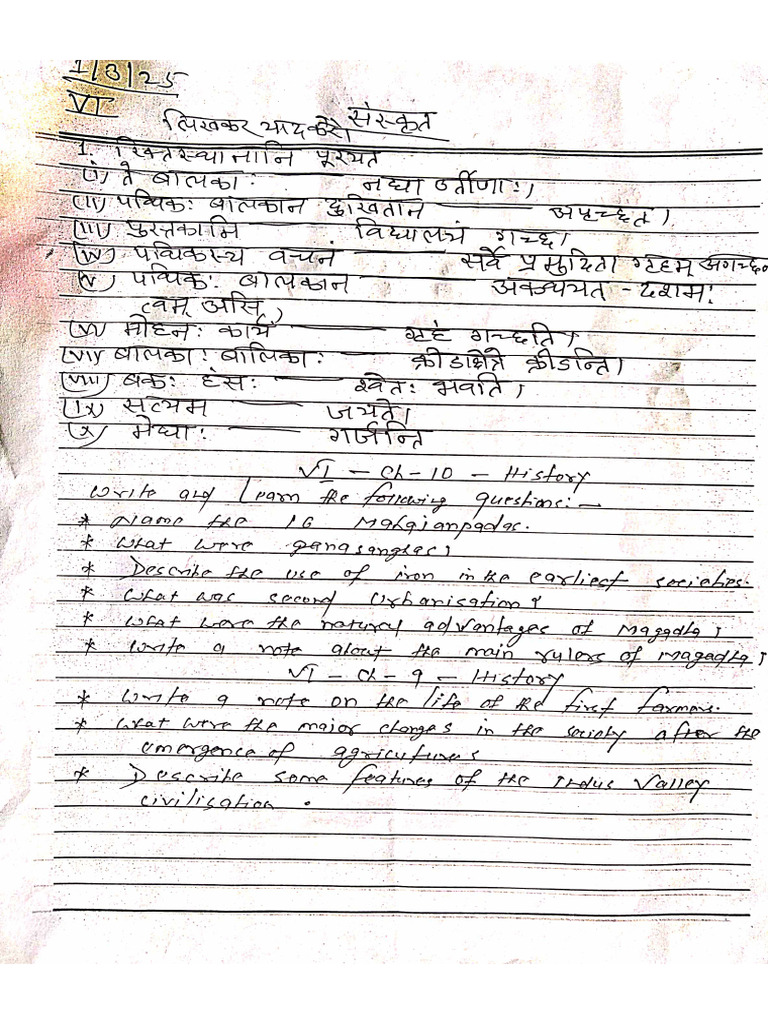 1/3/25
VI
लिखकर याद करो। संस्कृत
1. रिक्तस्थानानि पूरयत
(i) ते बालकाः नद्या उर्तीणाः।
(ii) पथिकः बालकान दुःखितान अपृच्छत।
(iii) पुस्तकानि विद्यालयं गच्छ।
(iv) पथिकस्य वचनं सर्वे प्रमुदिता गृहम् अगच्छन
(v) पथिकः बालकान अकथयत - दशमः
त्वम् असि।
(vi) मोहनः कार्यं गृहं गच्छति।
(vii) बालकाः बालिकाः क्रीडाक्षेत्रे क्रीडन्ति।
(viii) बकः हंसः श्वेतः भवति।
(ix) सत्यम जयते।
(x) मेघाः गर्जन्ति
VI - Ch - 10 - History
Write and Learn the following questions: -
* Name the 16 Mahajanpadas.
* What were ganasanghas?
* Describe the use of iron in the earliest societies.
* What was second Urbanisation?
* What were the natural advantages of Magadha?
* Write a note about the main rulers of Magadha?
VI - Ch - 9 - History
* Write a note on the life of the first farmers.
* What were the major changes in the society after the
emergence of agriculture?
* Describe some features of the Indus Valley
civilisation.